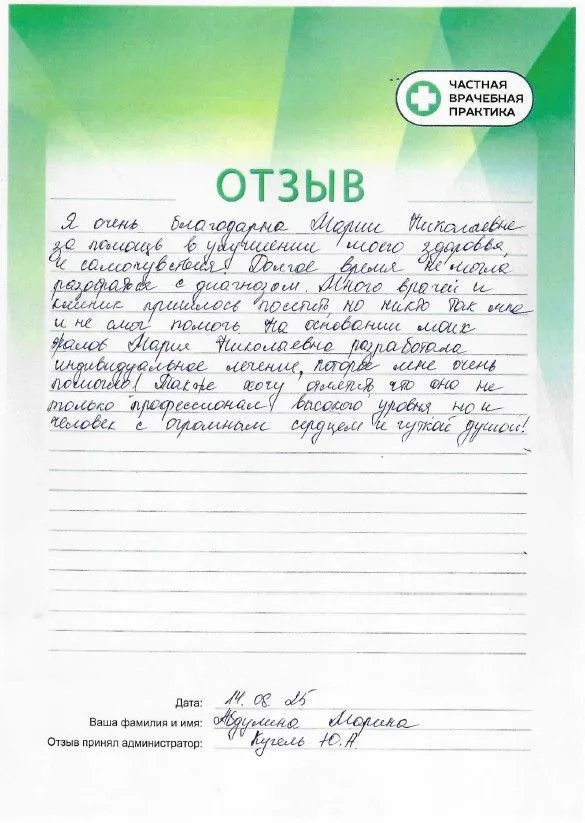 ЧАСТНАЯ
ВРАЧЕБНАЯ
ПРАКТИКА
ОТЗЫВ
Я очень благодарна Марии Николаевне
за помощь в улучшении моего здоровья
и самочувствия! Долгое время не могла
разобраться с диагнозом. Много врачей и
клиник пришлось посетить но никто так мне
и не смог помочь. На основании моих
жалоб Мария Николаевна разработала
индивидуальное лечение, которое мне очень
помогло! Также хочу отметить что она не
только профессионал высокого уровня но и
человек с огромным сердцем и чуткой душой!
Дата: 14. 08. 25
Ваша фамилия и имя: Абдулина Марина
Отзыв принял администратор: Кугель Ю.А